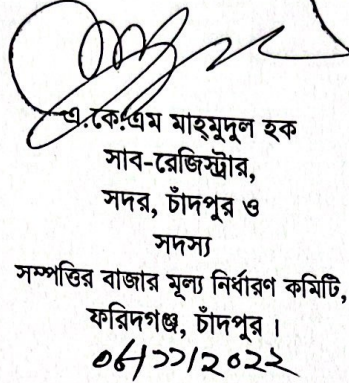 এ.কে.এম মাহ্‌মুদুল হক
সাব-রেজিস্ট্রার,
সদর, চাঁদপুর ও
সদস্য
সম্পত্তির বাজার মূল্য নির্ধারণ কমিটি,
ফরিদগঞ্জ, চাঁদপুর।
০৬/১১/২০২২